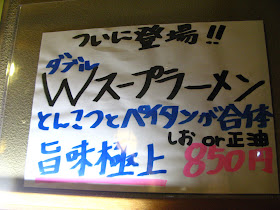 ついに登場!!
ダブル
Wスープラーメン
とんこつとパイタンが合体
しお or 正油
旨味極上 850円